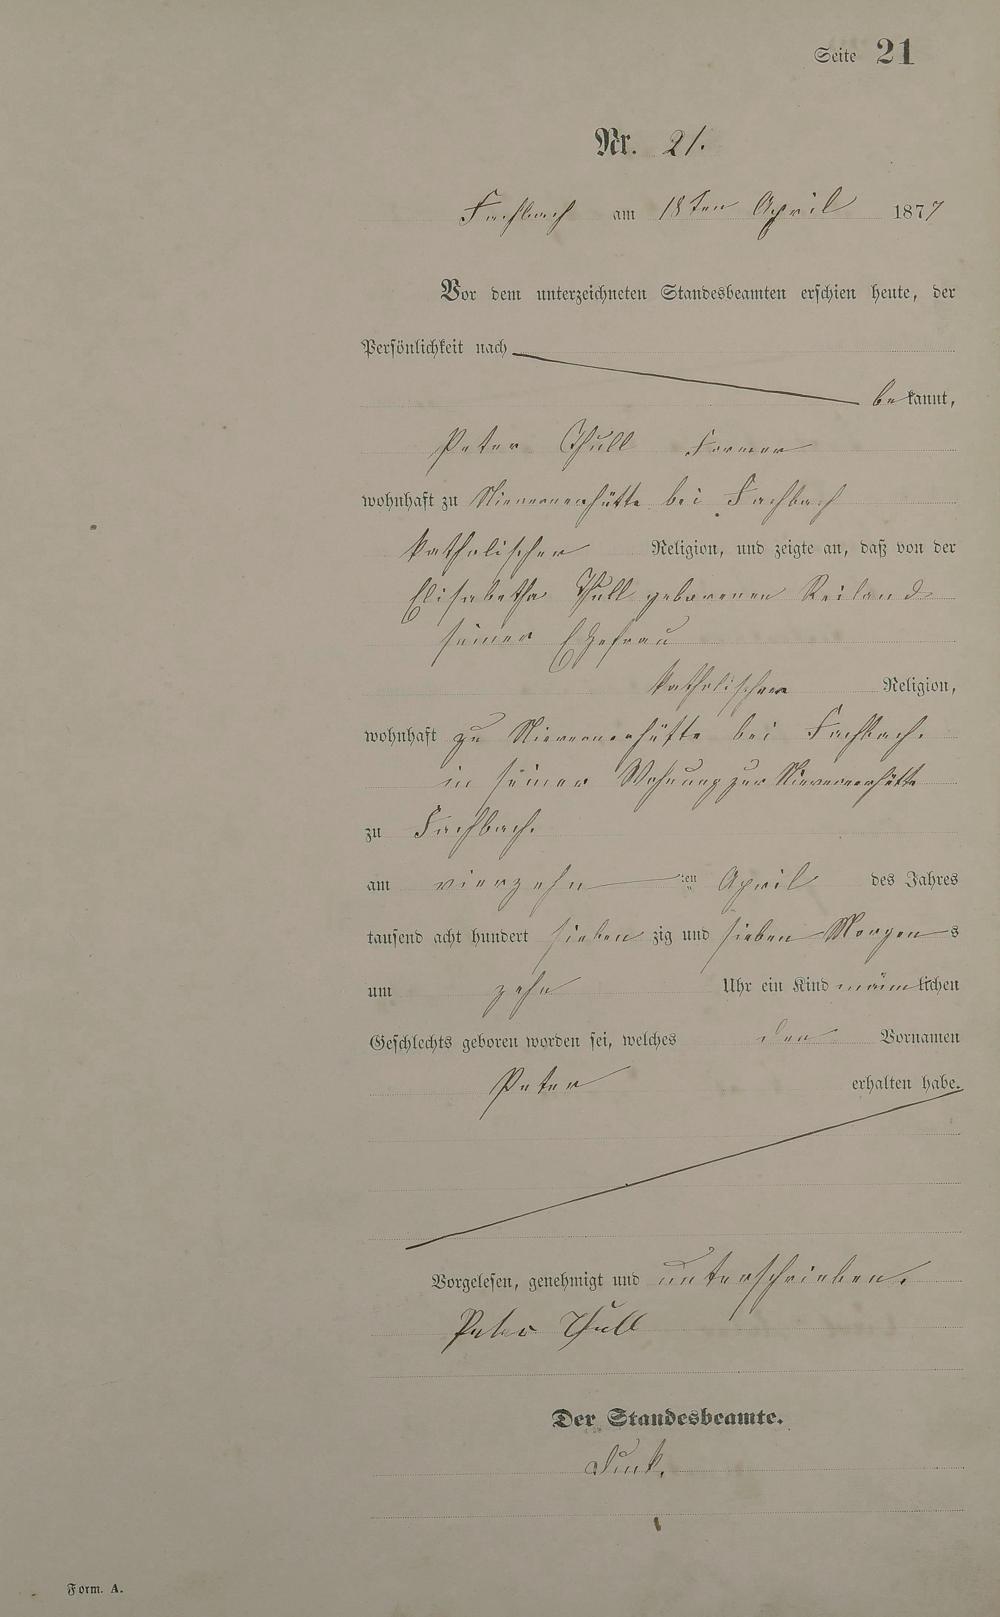 Seite 21
Nr. 21.
Fachbach am 18ten April 1877
Vor dem unterzeichneten Standesbeamten erschien heute, der
Persönlichkeit nach
bekannt,
Peter Thull Former
wohnhaft zu Nievernerhütte bei Fachbach
katholischer Religion, und zeigte an, daß von der
Elisabetha Thull geborenen Reiland
seiner Ehefrau
katholischer Religion,
wohnhaft zu Nievernerhütte bei Fachbach.
in seiner Wohnung zur Nievernerhütte
zu Fachbach.
am vierzehn ten April des Jahres
tausend acht hundert sieben zig und sieben Morgens
um zehn Uhr ein Kind männlichen
Geschlechts geboren worden sei, welches den Vornamen
Peter erhalten habe.
Vorgelesen, genehmigt und unterschrieben.
Peter Thull
Der Standesbeamte.
Form. A.